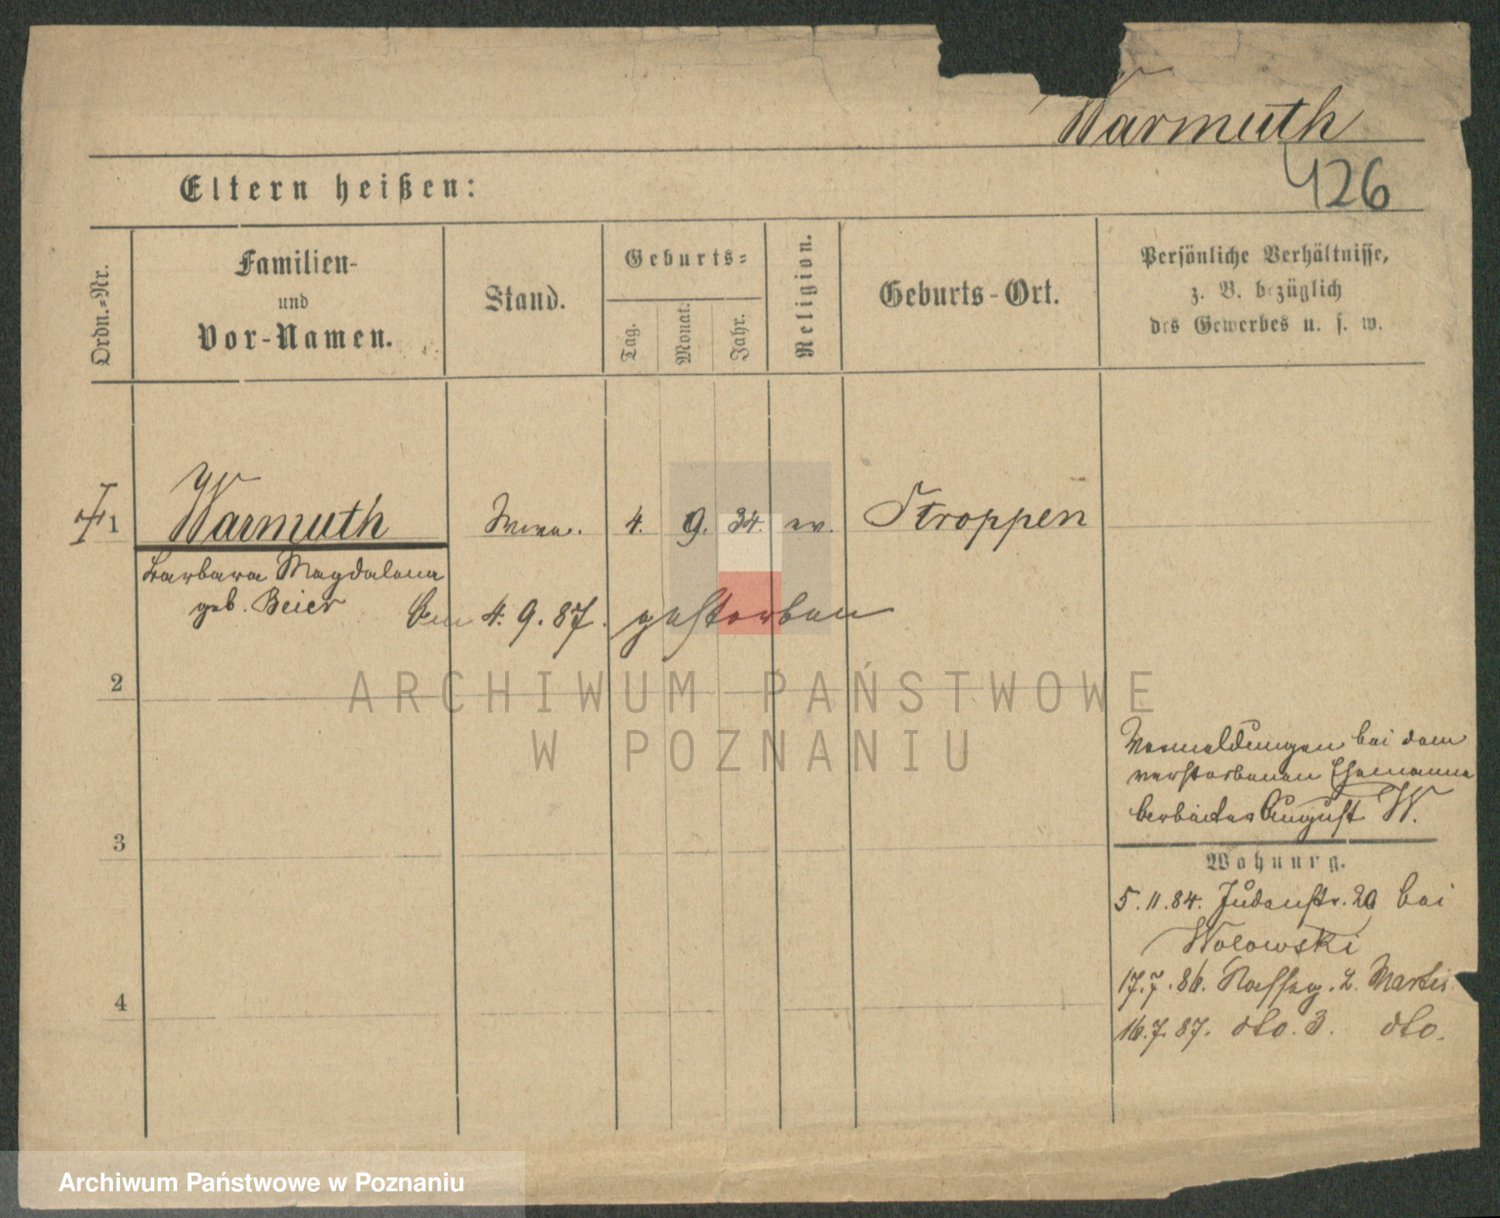 Warmuth
426
Eltern heißen:
Ordn.-Nr.
Familien-
und
Vor-Namen.
Stand.
Geburts-
Tag.
Monat.
Jahr.
Religion.
Geburts-Ort.
Persönliche Verhältnisse,
z. B. bezüglich
des Gewerbes u. s. w.
1 Warmuth Wwe. 4. 9. 34. ev. Stroppen
Barbara Magdalena
geb. Beier
Am 4. 9. 87. gestorben
2
ARCHIWUM PAŃSTWOWE
W POZNANIU
3
4
Vermeldungen bei dem
verstorbenen Ehemanne
August W.
Wohnung.
5. 11. 84. Judenstr. 29 bei
Wolowski
17. 7. 86. 2.
16. 7. 87. dto. 3. dto.
Archiwum Państwowe w Poznaniu